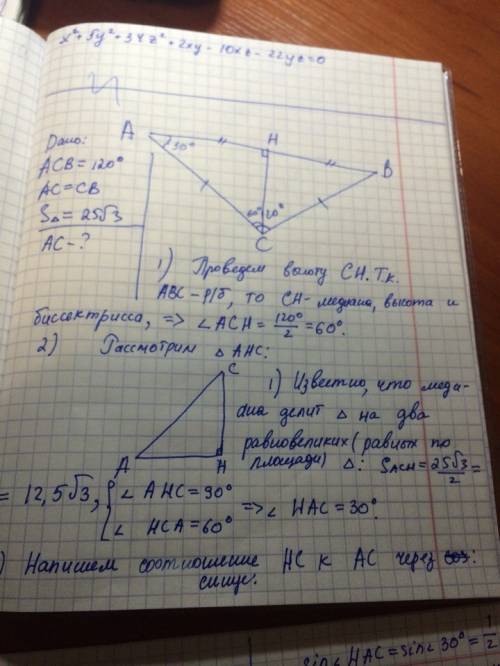 x² + 5y² + 34z² + 2xy - 10xz - 22yz = 0
Дано:
ACB = 120°
AC = CB
S△ = 25√3
AC - ?
A
H
B
C
30°
60°
1) Проведем высоту CH. Т.к.
ABC - р/б, то CH - медиана, высота и
биссектрисса, => ∠ACH = 120°/2 = 60°.
2) Рассмотрим △AHC:
C
A
H
1) Известно, что меди-
ана делит △ на два
равновеликих (равных по
площади) △: S ACH = 25√3/2 =
= 12,5√3, { ∠AHC = 90°
∠HCA = 60° => ∠HAC = 30°.
) Напишем соотношение HC к AC через
синус.
sin∠HAC = sin∠30° = 1/2